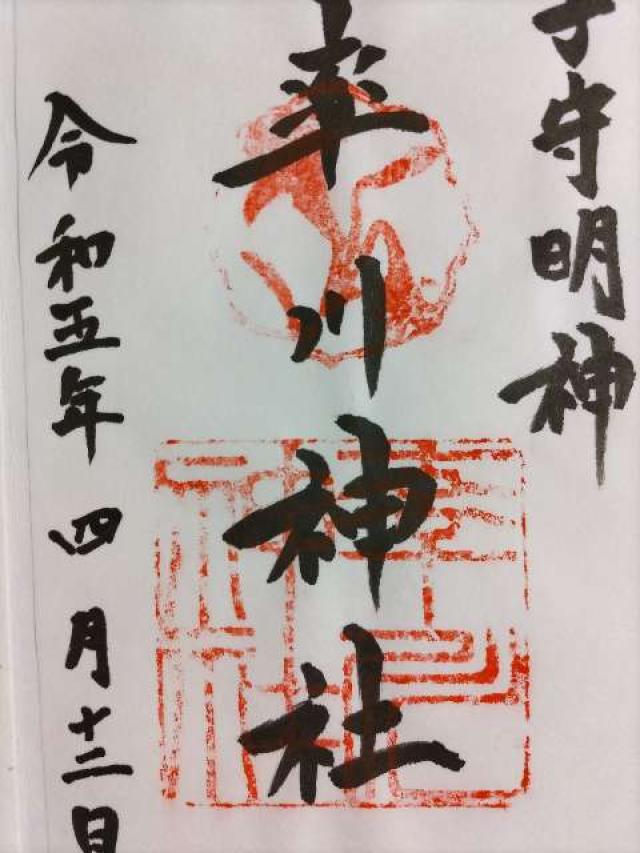 子守明神
率川神社
令和五年四月十二日